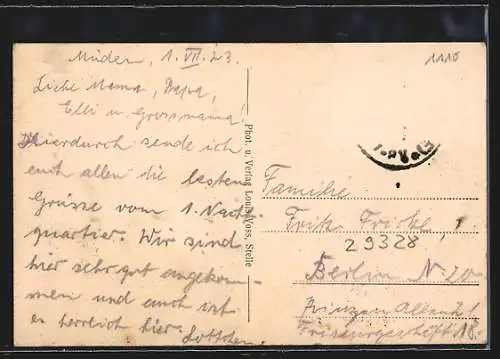 Müden, 1.VII.23.
Liebe Mama, Papa,
Elli u. Grossmama!
Hierdurch sende ich
euch allen die besten
Grüsse vom 1. Nacht-
quartier. Wir sind
hier sehr gut angekom-
men und auch ist
es herrlich hier.
Lottchen.
Phot. u. Verlag Louis Voss, Stelle
1110
Familie
Fritz Fricke,
29328
Berlin N. 20
Prinzen Allee
Friseurgeschäft